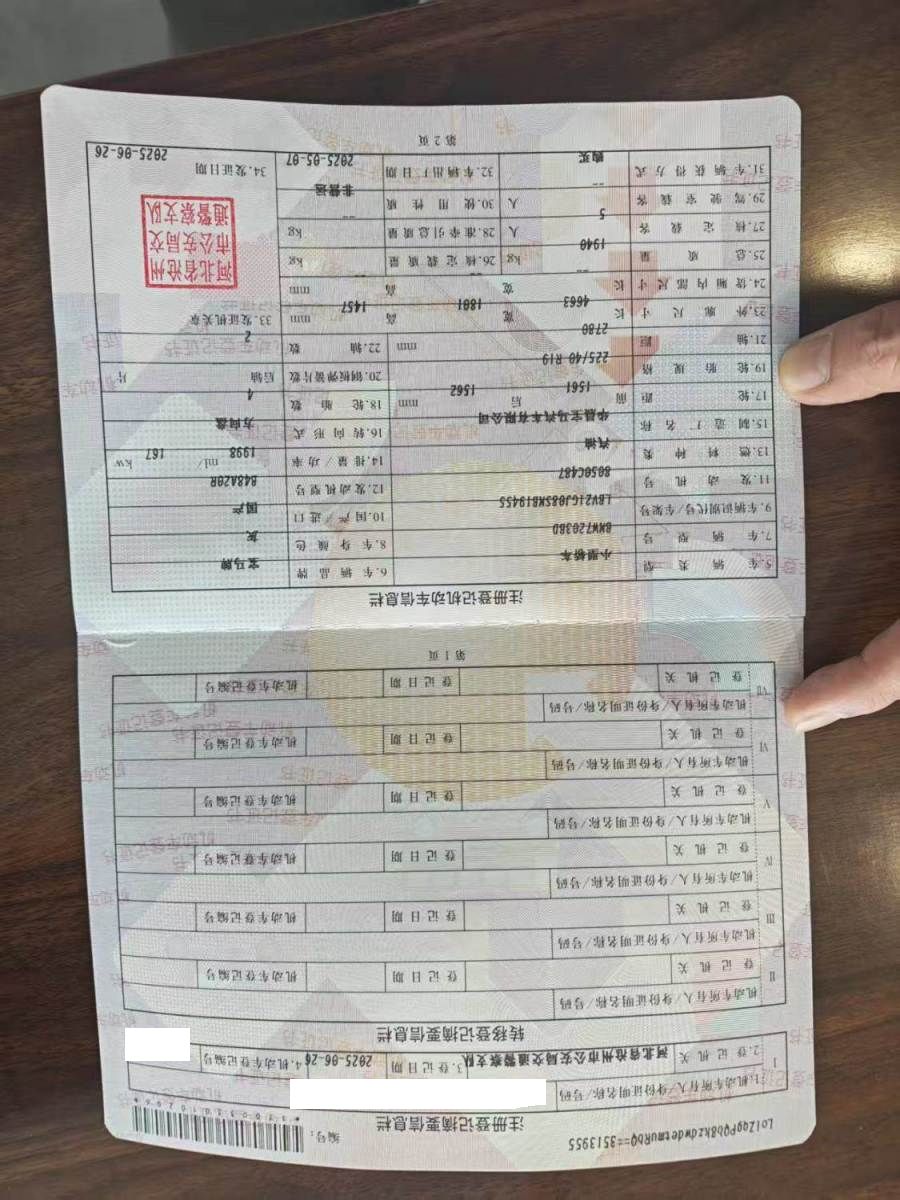 编号:
注册登记摘要信息栏
I
1.机动车所有人/身份证明名称/号码
2.登记机关 河北省沧州市公安局交通警察支队 3.登记日期 2025-06-26 4.机动车登记编号
转移登记摘要信息栏
II 机动车所有人/身份证明名称/号码
登记机关 登记日期 机动车登记编号
III 机动车所有人/身份证明名称/号码
登记机关 登记日期 机动车登记编号
IV 机动车所有人/身份证明名称/号码
登记机关 登记日期 机动车登记编号
V 机动车所有人/身份证明名称/号码
登记机关 登记日期 机动车登记编号
VI 机动车所有人/身份证明名称/号码
登记机关 登记日期 机动车登记编号
VII 机动车所有人/身份证明名称/号码
登记机关 登记日期 机动车登记编号
第1页
注册登记机动车信息栏
5.车辆类型 小型轿车 6.车辆品牌 宝马牌
7.车辆型号 BMW7203BD 8.车身颜色 灰
9.车辆识别代号/车架号 LBVZ1GJ08SMB19455 10.国产/进口 国产
11.发动机号 8050C487 12.发动机型号 B48A20R
13.燃料种类 汽油 14.排量/功率 1998 ml/ 167 kw
15.制造厂名称 华晨宝马汽车有限公司 16.转向形式 方向盘
17.轮距 前 1561 后 1562 mm 18.轮胎数 4
19.轮胎规格 225/40 R19 20.钢板弹簧片数 后轴 片
21.轴距 2780 mm 22.轴数 2
23.外廓尺寸 长 4663 宽 1801 高 1457 mm 33.发证机关章
24.货厢内部尺寸 长 宽 高 mm
25.总质量 1940 kg 26.核定载质量 -- kg
27.核定载客 5 人 28.准牵引总质量 -- kg
29.驾驶室载客 -- 人 30.使用性质 非营运
31.车辆获得方式 购买 32.车辆出厂日期 2025-05-07 34.发证日期 2025-06-26
河北省沧州
市公安局交
通警察支队
第2页